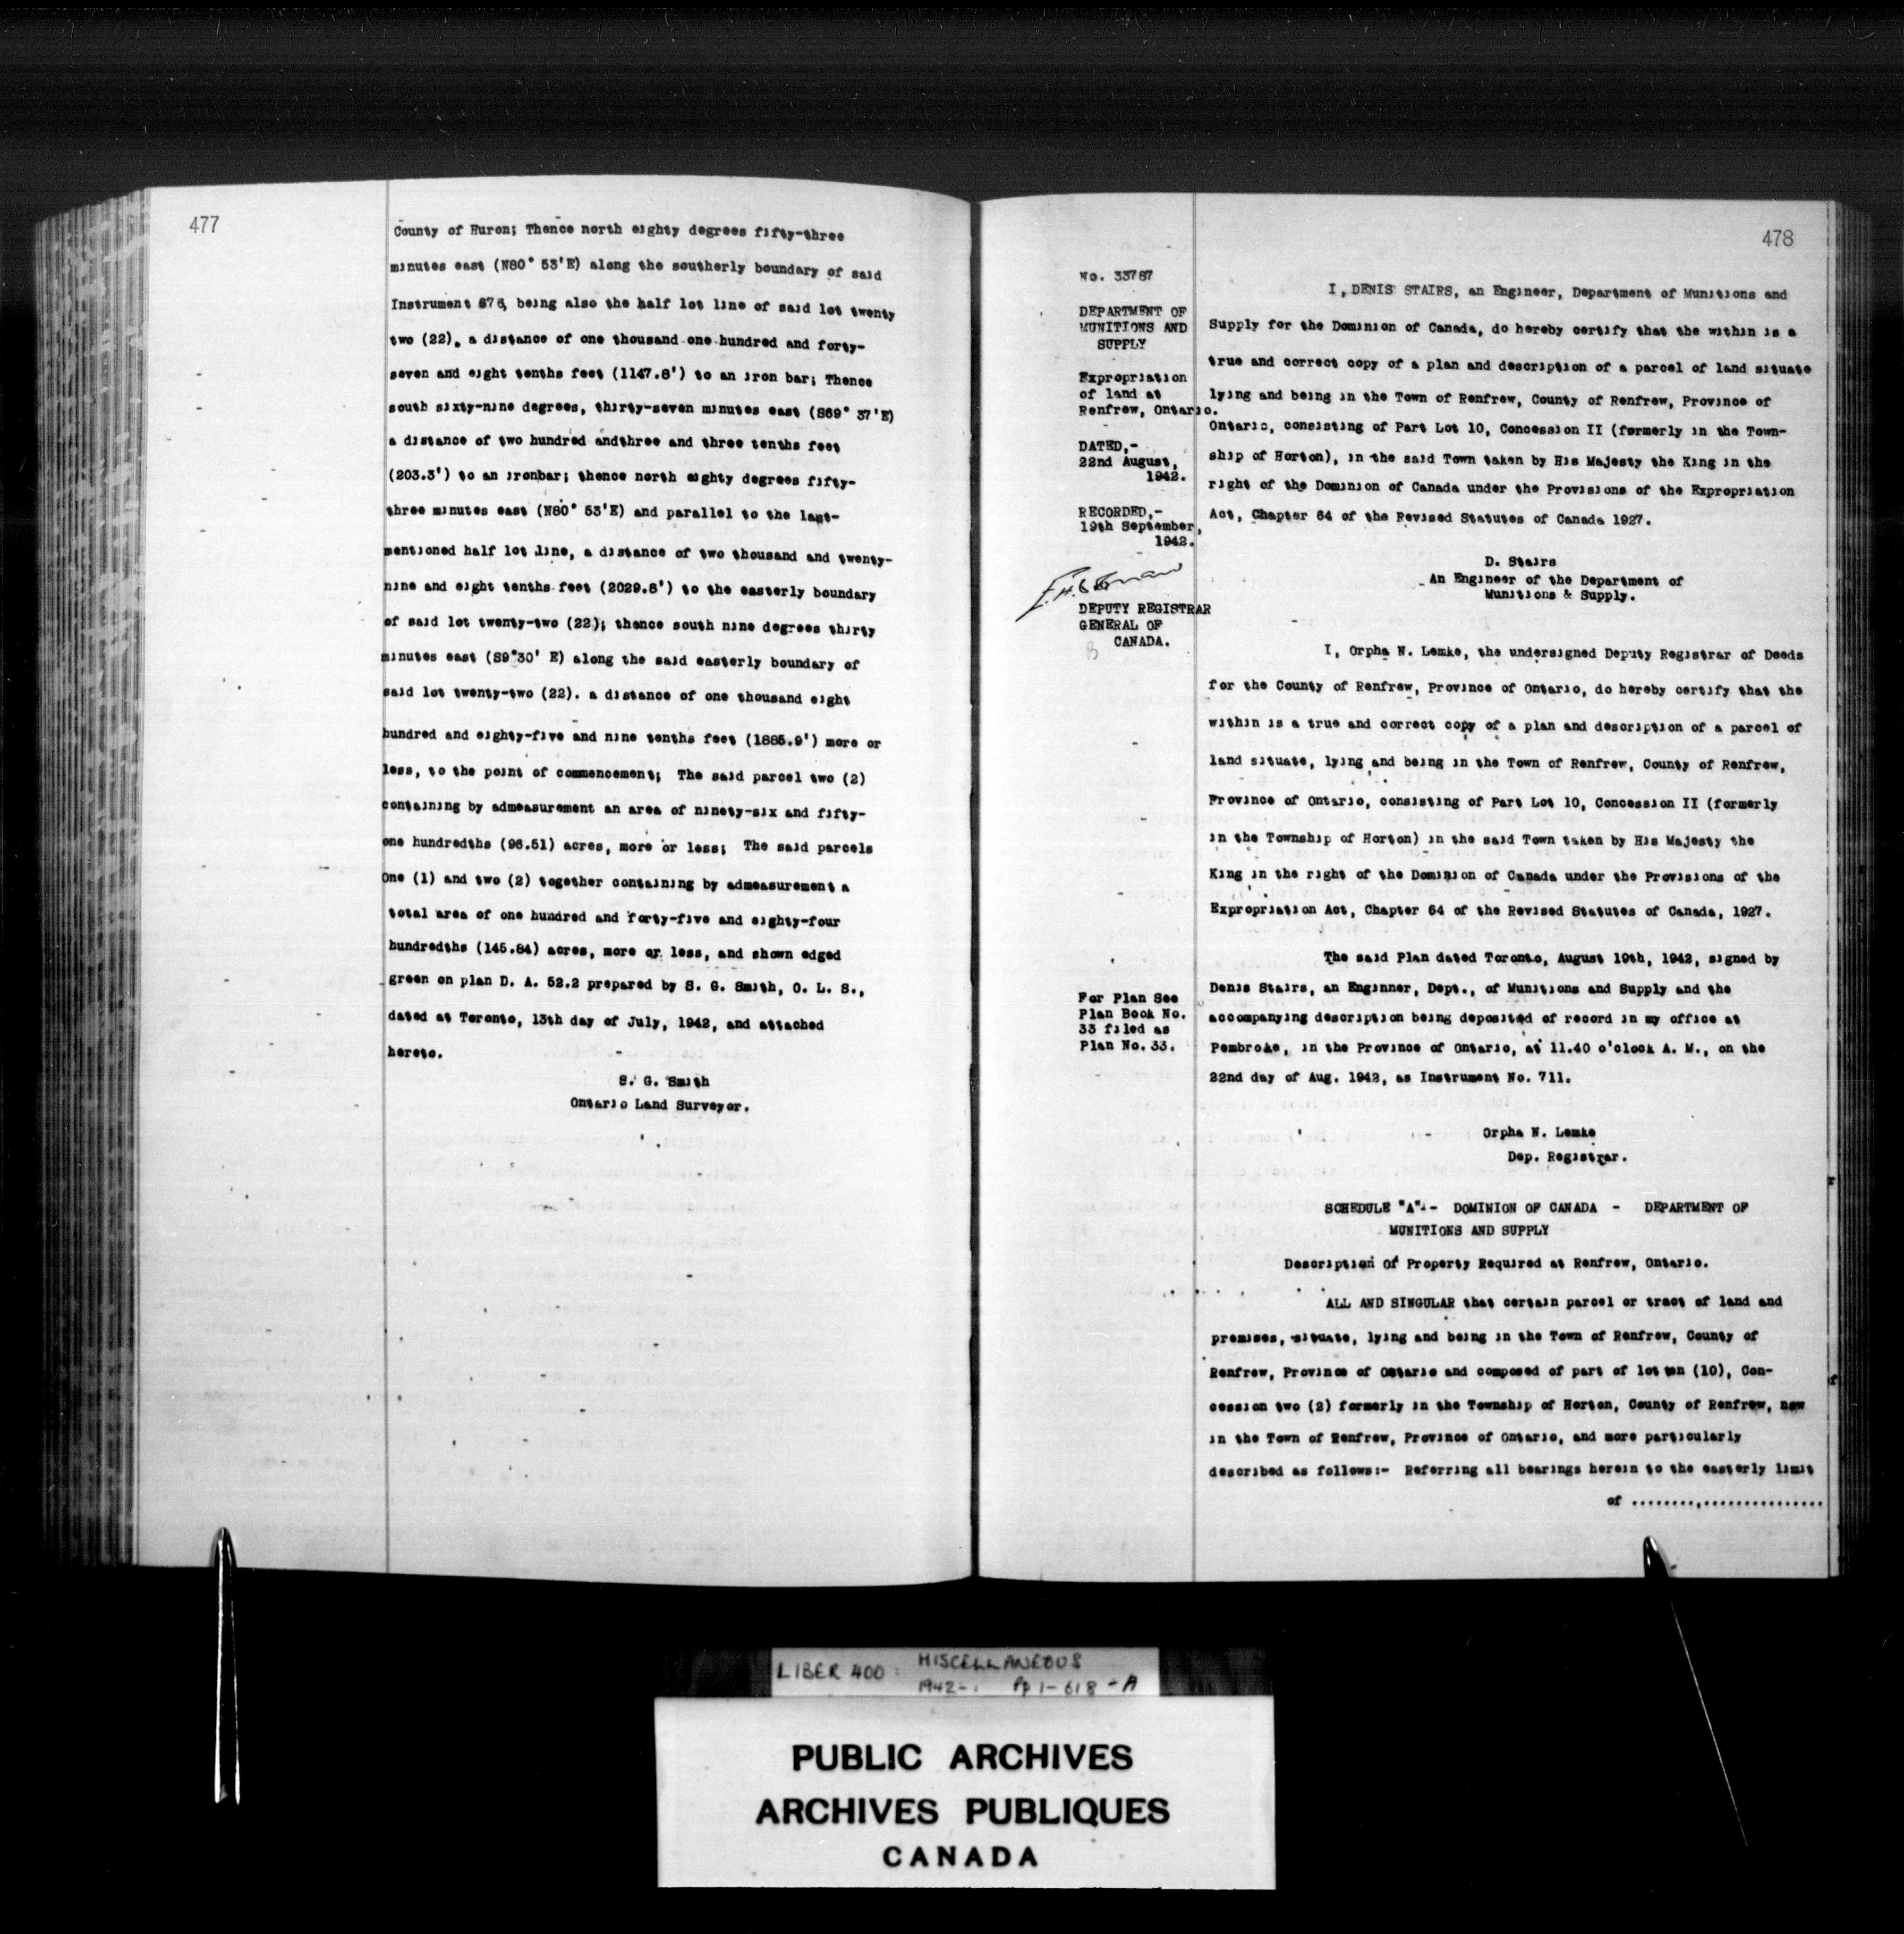 477
County of Huron; Thence north eighty degrees fifty-three
minutes east (N80° 53'E) along the southerly boundary of said
Instrument 676, being also the half lot line of said lot twenty
two (22), a distance of one thousand one hundred and forty-
seven and eight tenths feet (1147.8') to an iron bar; Thence
south sixty-nine degrees, thirty-seven minutes east (S69° 37'E)
a distance of two hundred andthree and three tenths feet
(203.3') to an ironbar; thence north eighty degrees fifty-
three minutes east (N80° 53'E) and parallel to the last-
mentioned half lot line, a distance of two thousand and twenty-
nine and eight tenths feet (2029.8') to the easterly boundary
of said lot twenty-two (22); thence south nine degrees thirty
minutes east (S9°30' E) along the said easterly boundary of
said lot twenty-two (22). a distance of one thousand eight
hundred and eighty-five and nine tenths feet (1885.9') more or
less, to the point of commencement; The said parcel two (2)
containing by admeasurement an area of ninety-six and fifty-
one hundredths (96.51) acres, more or less; The said parcels
One (1) and two (2) together containing by admeasurement a
total area of one hundred and forty-five and eighty-four
hundredths (145.84) acres, more or less, and shown edged
green on plan D. A. 52.2 prepared by S. G. Smith, O. L. S.,
dated at Toronto, 13th day of July, 1942, and attached
hereto.
S. G. Smith
Ontario Land Surveyor.
478
No. 33787
DEPARTMENT OF
MUNITIONS AND
SUPPLY
Expropriation
of land at
Renfrew, Ontario.
DATED,-
22nd August,
1942.
RECORDED,-
19th September,
1942.
DEPUTY REGISTRAR
GENERAL OF
CANADA.
B
I, DENIS STAIRS, an Engineer, Department of Munitions and
Supply for the Dominion of Canada, do hereby certify that the within is a
true and correct copy of a plan and description of a parcel of land situate
lying and being in the Town of Renfrew, County of Renfrew, Province of
Ontario, consisting of Part Lot 10, Concession II (formerly in the Town-
ship of Horton), in the said Town taken by His Majesty the King in the
right of the Dominion of Canada under the Provisions of the Expropriation
Act, Chapter 64 of the Revised Statutes of Canada 1927.
D. Stairs
An Engineer of the Department of
Munitions & Supply.
I, Orpha N. Lemke, the undersigned Deputy Registrar of Deeds
for the County of Renfrew, Province of Ontario, do hereby certify that the
within is a true and correct copy of a plan and description of a parcel of
land situate, lying and being in the Town of Renfrew, County of Renfrew,
Province of Ontario, consisting of Part Lot 10, Concession II (formerly
in the Township of Horton) in the said Town taken by His Majesty the
King in the right of the Dominion of Canada under the Provisions of the
Expropriation Act, Chapter 64 of the Revised Statutes of Canada, 1927.
The said Plan dated Toronto, August 19th, 1942, signed by
Denis Stairs, an Enginner, Dept., of Munitions and Supply and the
accompanying description being deposited of record in my office at
Pembroke, in the Province of Ontario, at 11.40 o'clock A. M., on the
22nd day of Aug. 1942, as Instrument No. 711.
For Plan See
Plan Book No.
33 filed as
Plan No. 33.
Orpha N. Lemke
Dep. Registrar.
SCHEDULE "A" - DOMINION OF CANADA - DEPARTMENT OF
MUNITIONS AND SUPPLY
Description Of Property Required at Renfrew, Ontario.
ALL AND SINGULAR that certain parcel or tract of land and
premises, situate, lying and being in the Town of Renfrew, County of
Renfrew, Province of Ontario and composed of part of lot ten (10), Con-
cession two (2) formerly in the Township of Horton, County of Renfrew, now
in the Town of Renfrew, Province of Ontario, and more particularly
described as follows:- Referring all bearings herein to the easterly limit
of ........................
LIBER 400: MISCELLANEOUS
1942-. Pp 1-618-A
PUBLIC ARCHIVES
ARCHIVES PUBLIQUES
CANADA